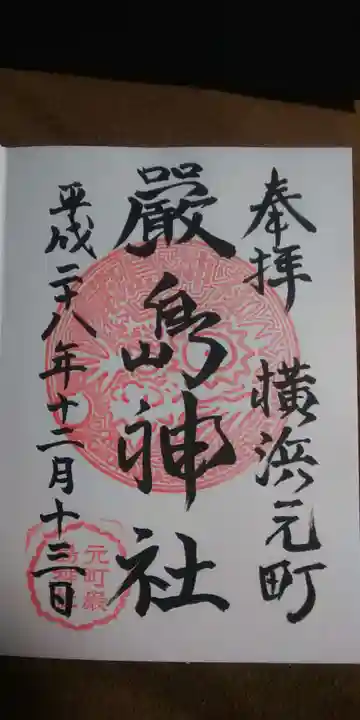 奉拝 横浜元町
嚴島神社
平成二十八年十二月十三日